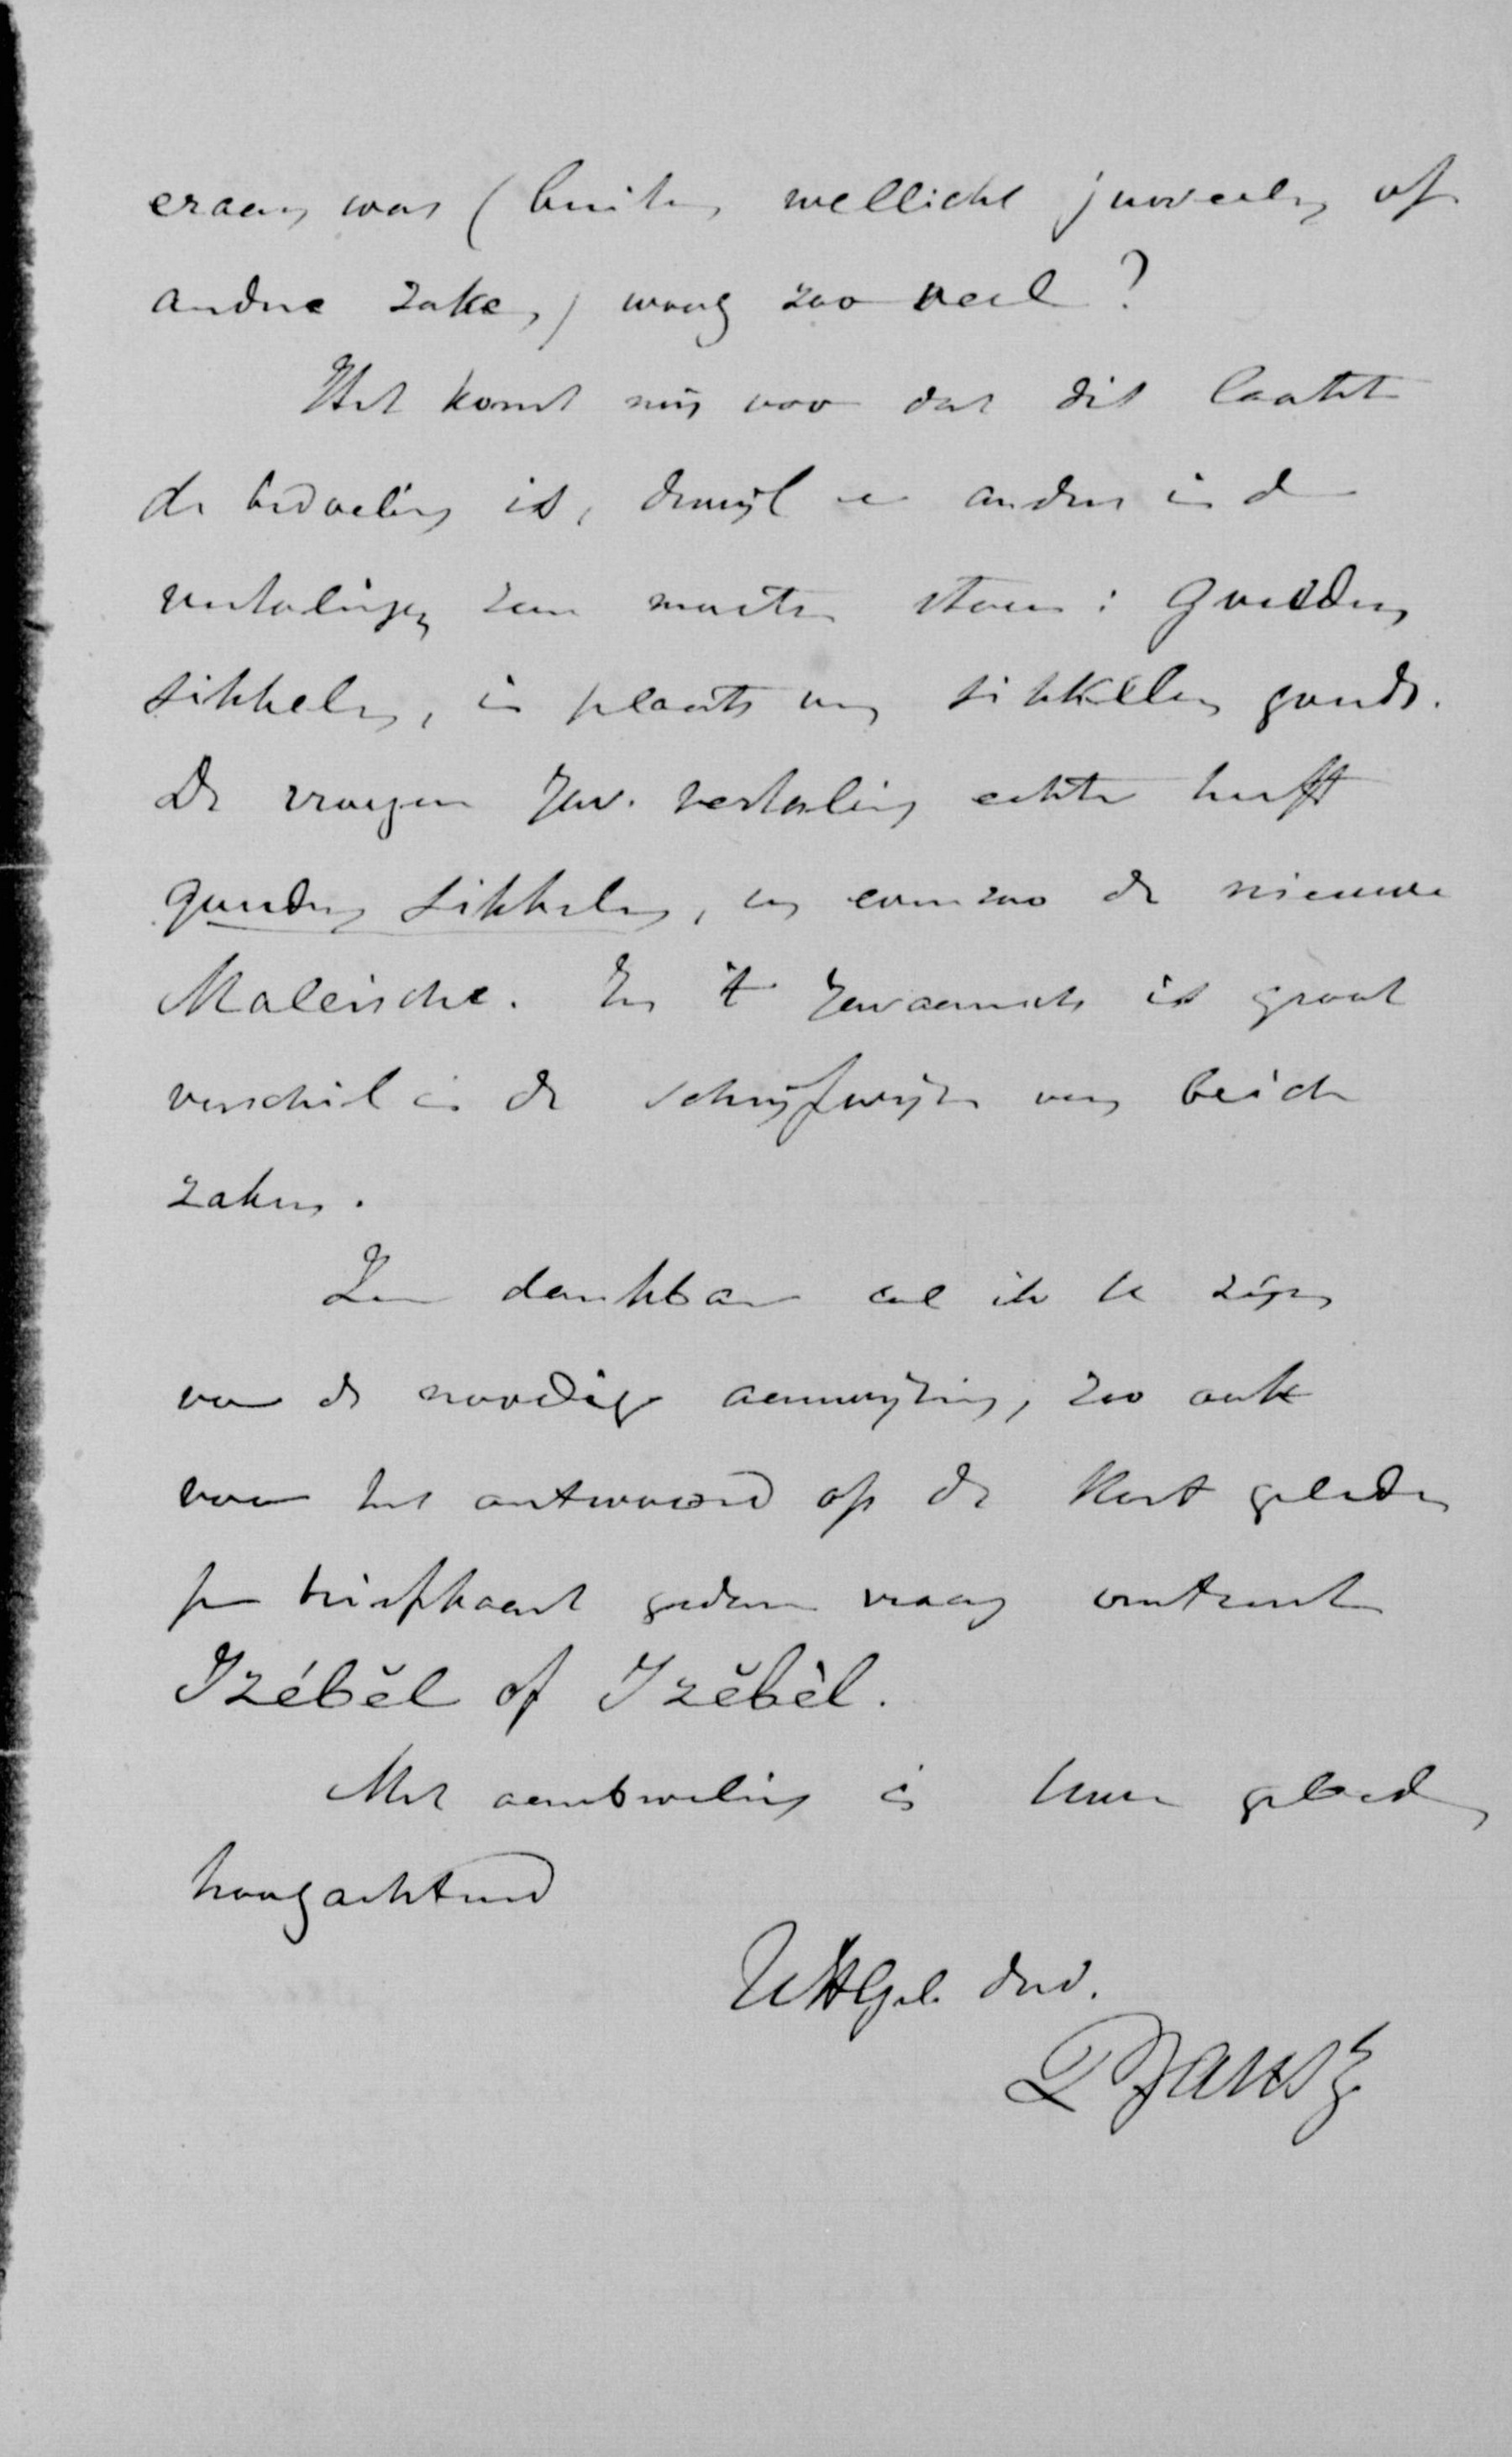 eraan was (buiten wellicht juweelen of
andere zaken) woog zoo veel?
Het komt mij voor dat dit laatste
de bedoeling is, dewijl er anders in de
vertalingen zou moeten staan: gouden
sikkelen, in plaats van sikkelen gouds.
De vroegere Jav. vertaling echter heeft
gouden sikkelen, en evenzoo de nieuwe
Maleische. In 't Javaansch is groot
verschil in de schrijfwijze van beide
zaken.
Zeer dankbaar zal ik U zijn
voor de noodige aanwijzing, zoo ook
voor het antwoord op de kort geleden
per briefkaart gedane vraag omtrent
Izébĕl of Izĕbèl.
Met aanbeveling in Uwe gebeden
hoogachtend
UHGel. dnr.
P Jansz